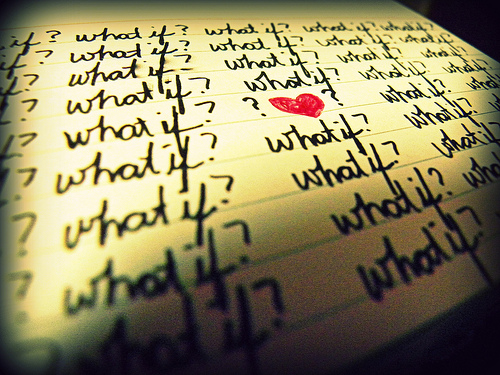 if? what if? what if? what if? what if?
if? what if? what if? what if? what if?
? what if? what if? what if? what if?
? what if? what if? what if? what if?
? what if? ? ♥ ? what if? what if?
? what if? what if? what if?
? what if? what if? what if?
? what if? what if?
what if? what if?